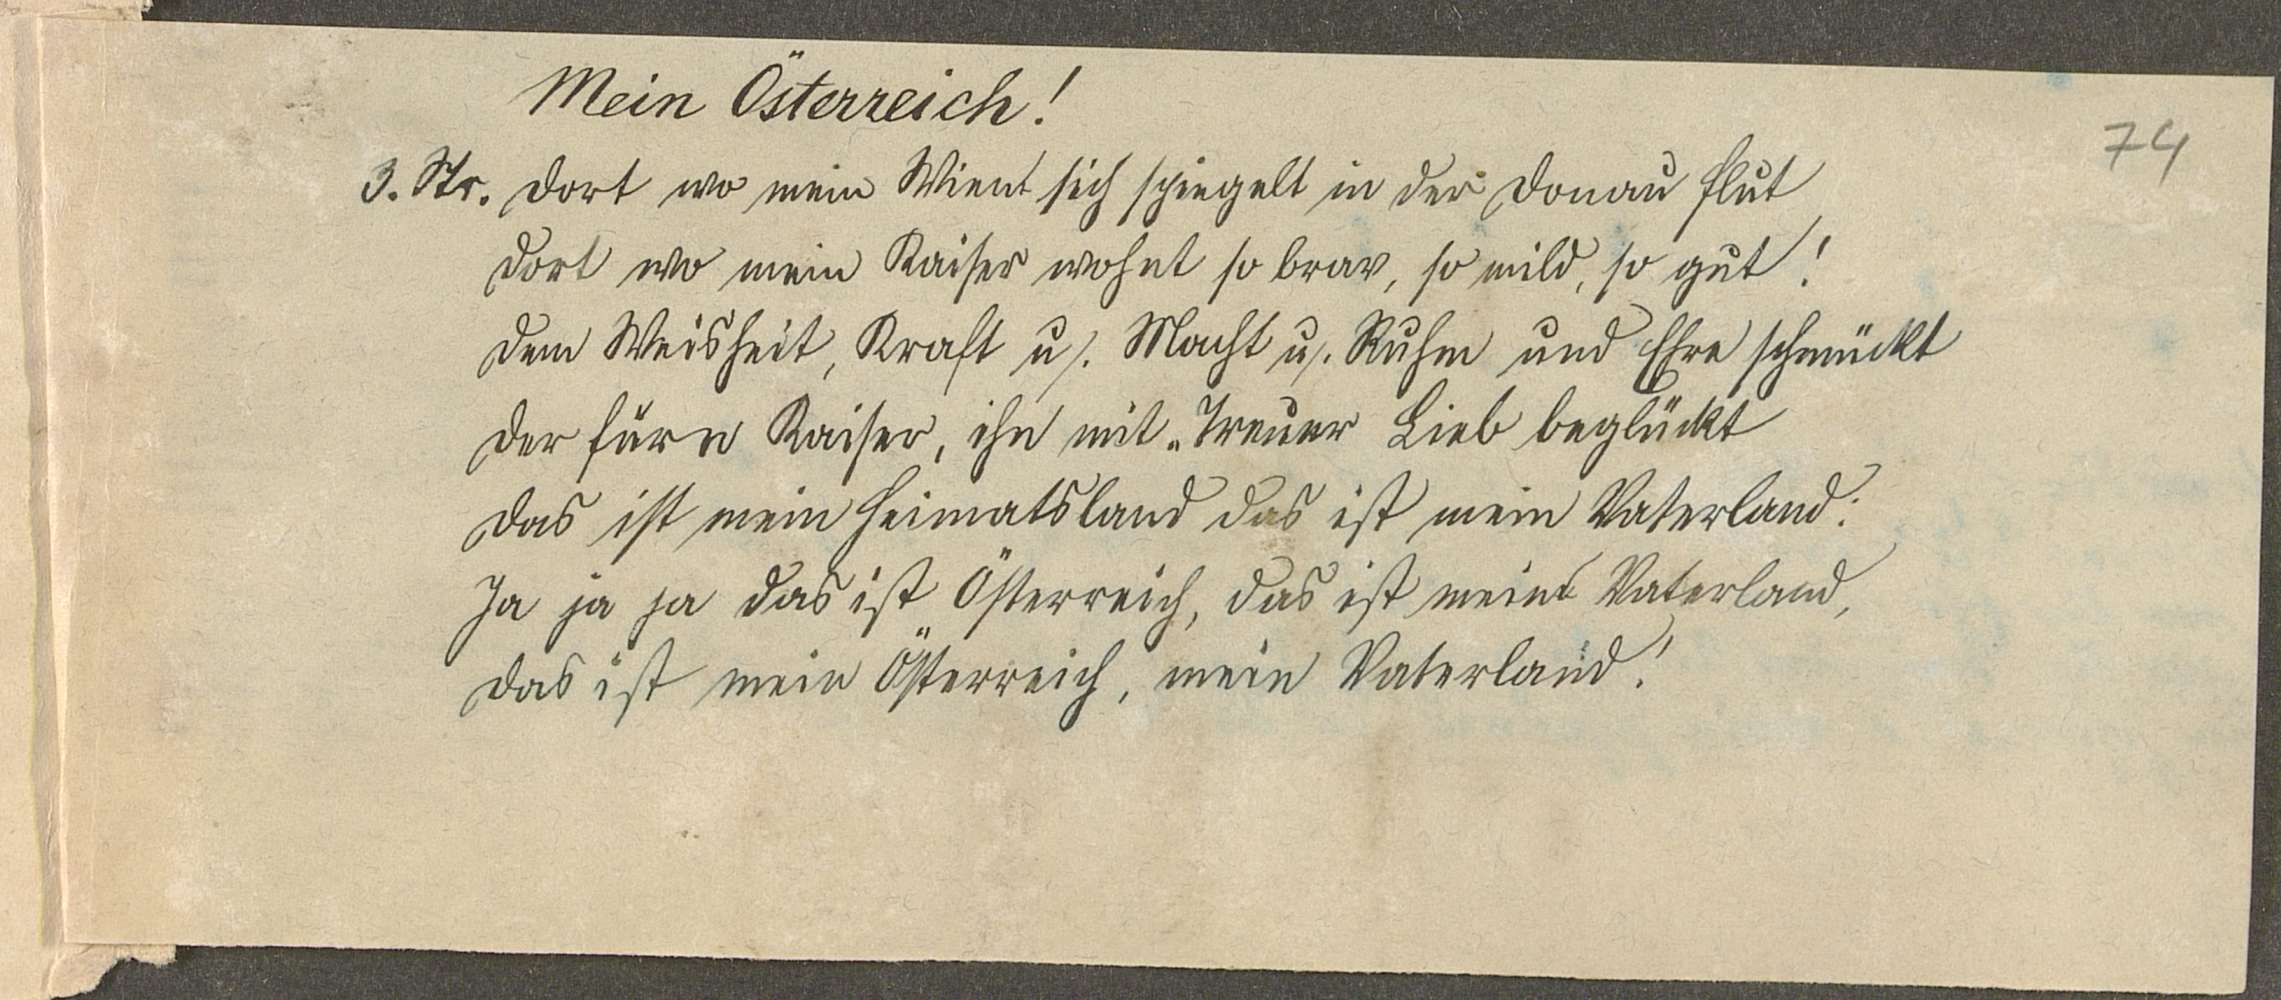 Mein Österreich!
74
3. Str. Dort wo mein Wien sich spiegelt in der Donau Flut
Dort wo mein Kaiser wohnt so brav, so mild, so gut!
Dem Weisheit, Kraft u. Macht u. Ruhm und Ehre schmückt
Der fürn Kaiser, ihn mit Treuer Lieb beglückt
Das ist mein Heimatsland das ist mein Vaterland:
Ja ja ja das ist Österreich, das ist mein Vaterland,
Das ist mein Österreich, mein Vaterland!